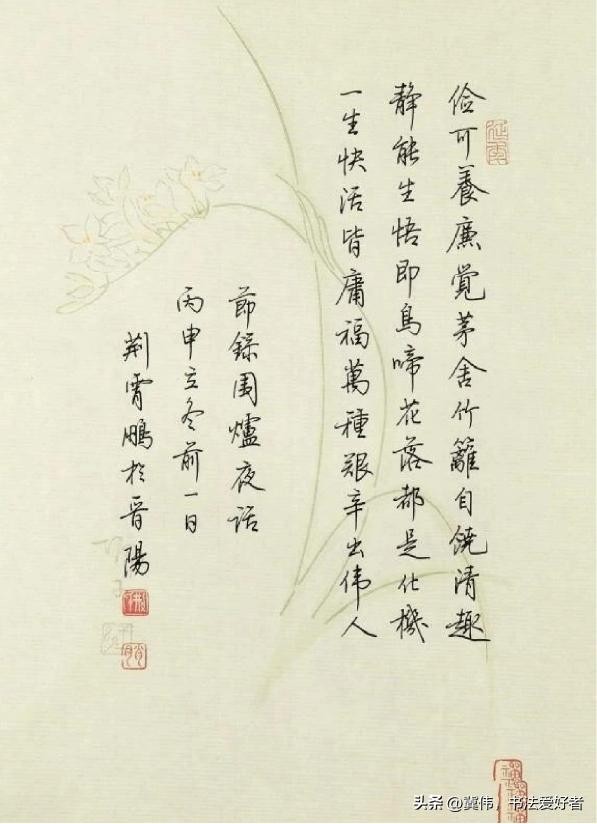 俭可養廉觉茅舍竹籬自饶清趣
静能生悟即鳥啼花落都是化機
一生快活皆庸福萬種艰辛出伟人
節録围爐夜话
丙申立冬前一日
荆霄鵬於晋陽
头条@冀伟，书法爱好者